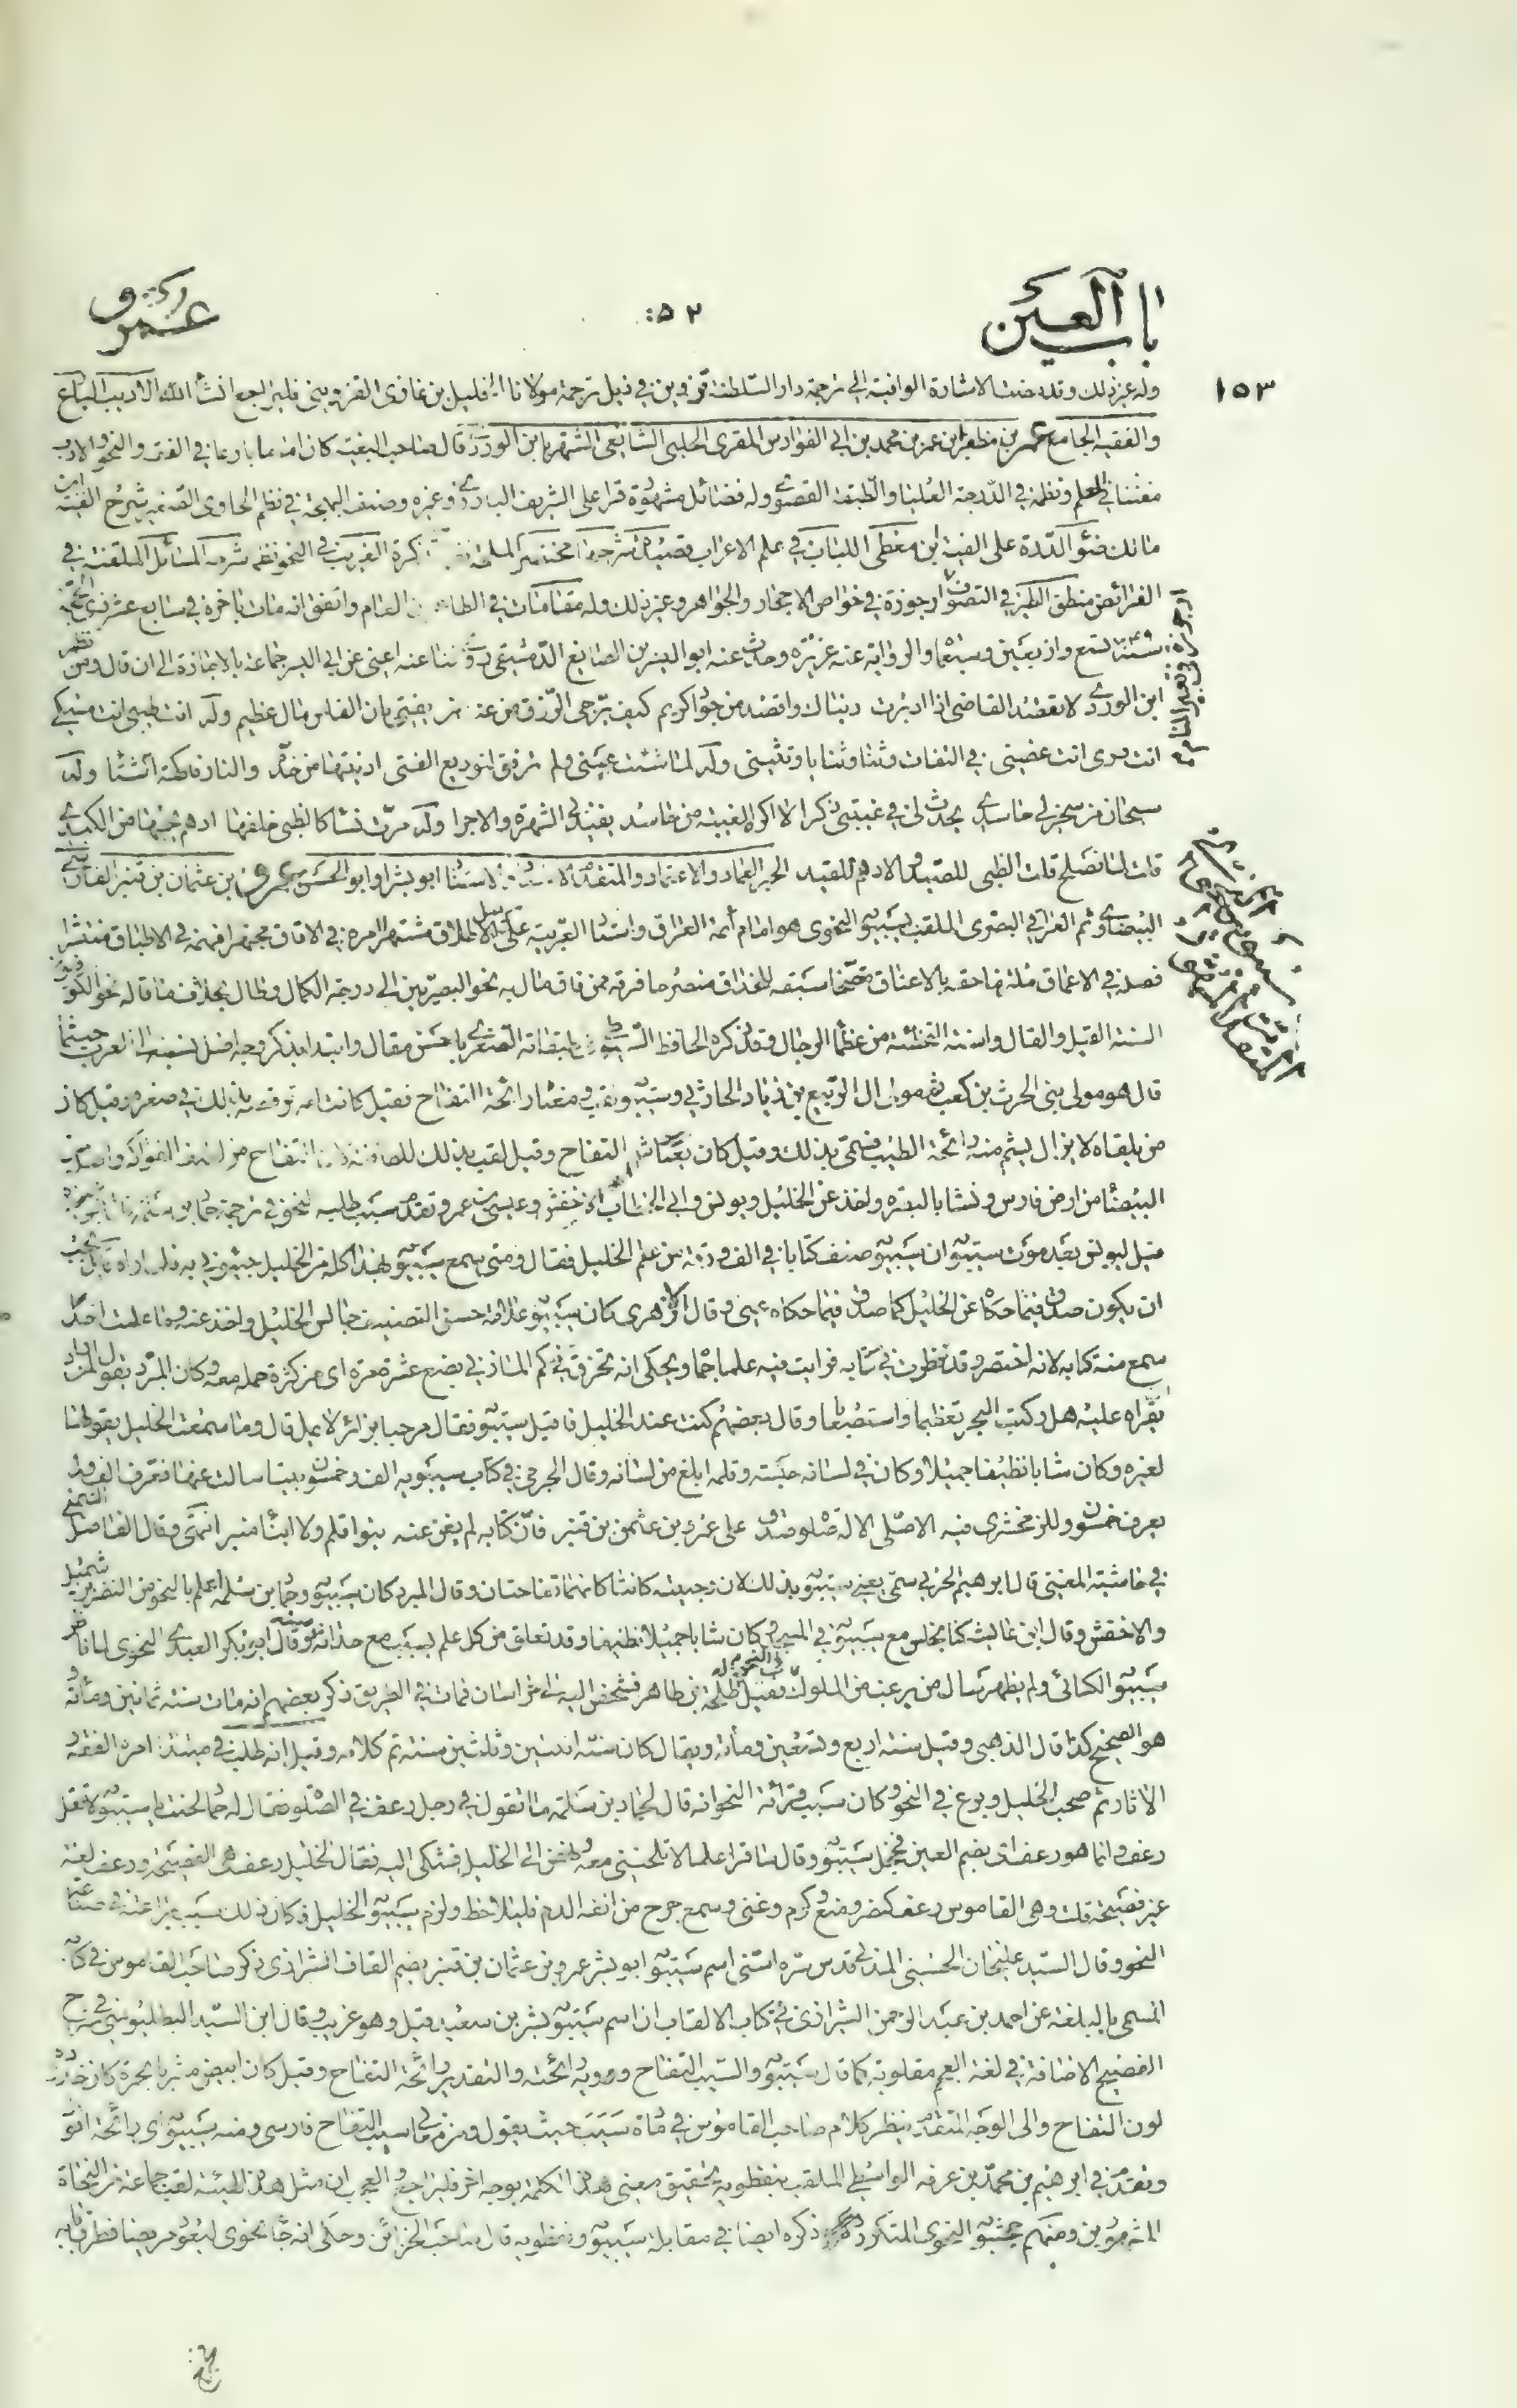 باب العين
٥٠٢
عمرو
١٥٣
وله غير ذلك وقد مضت الاشارة الوافية الى ترجمة دار السلطنة قزوين في ذيل ترجمة مولانا خليل بن غازى القزوينى فليراجع انشاء الله الاديب البارع
والفقيه الجامع عمر بن مظفر بن عمر بن محمد بن ابى الفوارس المقرى الحلبى الشافعى الشهير بابن الوردى قال صاحب البغية كان اماما بارعا في الفقه والنحو والادب
مفننا في العلم ونظمه في الدرجة العليا والطبقة القصوى وله فضائل مشهورة قرا على الشرف البارزى وغيره وصنف البهجة في نظم الحاوى الصغير شرح الفية ابن
مالك ضوء الدرة على الفية ابن معطى اللباب في علم الاعراب قصيدة شرحها مختصر الملحة تذكرة الغريب في النحو نظم شرحه المسائل الملقبة في
الفرائض منطق الطير في التصوف ارجوزة في خواص الاحجار والجواهر وغير ذلك وله مقامات في الطاعون العام واتفق انه مات باخره في سابع عشر ذى الحجة
سنة ٧٤٩ تسع واربعين وسبعمأة والرواية عنه عزيزة وحدث عنه ابو اليسر بن الصايغ الدمشقى حدثنا عنه اعنى عن ابى اليسر جماعة بالاجازة الى ان قال ومن نظم
ابن الوردى لا تقصد القاضى اذا ادبرت دنياك واقصد من جواد كريم كيف ترجى الرزق من عند من يفتى بان الفلس مال عظيم وله انت ظبيى انت مسكى
انت درى انت غصنى في التفات وثنا وثنايا وتثنى وله لما شتت عينى ولم ترفق لتوديع الفتى ادنيتها من خده والنار فاكهة الشتا وله
سبحان من سخر لى حاسدى يحدث لى في غيبتى ذكرا لا اكره الغيبة من حاسد يفيدنى الشهرة والاجرا وله مرت نسا كالظبى خلفها ادهم يحبها من الكيد
قلت لما تصلح قلت الظبى للصيد والادهم للقيد الحبر العماد والاعتماد والمتقدم الاستاد ابو بشر او ابو الحسن عمرو بن عثمان بن قنبر الفارسى
البيضاوى ثم العراقى البصرى الملقب بسيبويه النحوى هو امام ائمة العراق واستاد العربية على سبيل الاطلاق مشتهر امره في الافاق مجتهر فهمه في الاطباق منتشر
فضله في الاعماق مثلثها حقه بالاعناق سبقه للحذاق منصرحا فرقه ممن فاق مال به نحو البصريين الى درجة الكمال وطال بخلاف ما قاله نحو الكوفيين
السنة القيل والقال واسنة التخطئة من عظماء الرجال وقد ذكره الحافظ السيوطى في طبقاته الصغرى باحسن مقال وابتدا بذكر وجه اصل لقبه الغريب حيثما
قال هو مولى بنى الحرث بن كعب ثم مولى ال الربيع بن زياد الحارثى وسيبويه لقب معناه رائحة التفاح فقيل كانت امه ترقصه بذلك في صغره وقيل كان
من يلقاه لا يزال يشم منه رائحة الطيب فسمى بذلك وقيل كان يعتاد شم التفاح وقيل لقب بذلك للطافته لان التفاح من لطيف الفواكه واصله من
البيضاء من ارض فارس ونشا بالبصرة واخذ عن الخليل ويونس وابى الخطاب الاخفش وعيسى بن عمرو وتقدم سبب طلبه للنحو في ترجمة حماد بن سلمة
قيل ليونس بعد موت سيبويه ان سيبويه صنف كتابا في الف ورقة من علم الخليل فقال ومتى سمع سيبويه هذا كله من الخليل جيئونى به فلما راه قال يجب
ان يكون صدق فيما حكاه عن الخليل كما صدق فيما حكاه عنى وقال الازهرى كان سيبويه علامة حسن التصنيف جالس الخليل واخذ عنه وما علمت احدا
سمع منه كتابه لانه اختصر وقد نظرت في كتابه فرايت فيه علما جما ويحكى انه تخرق في كم المازنى بضع عشرة مرة اى من كثرة حمله معه وكان المبرد يقول لمن اراد
يقراه عليه هل ركبت البحر تعظيما واستصعابا وقال بعضهم كنت عند الخليل فاقبل سيبويه فقال مرحبا بزائر لا يمل قال وما سمعت الخليل يقولها
لغيره وكان شابا نظيفا جميلا وكان في لسانه حبسة وقلمه ابلغ من لسانه وقال الجرمى في كتاب سيبويه الف وخمسون بيتا سالت عنها فعرف الف ولم
يعرف خمسون وللزمخشرى فيه الا صلى الاله صلوة صدق على عمرو بن عثمن بن قنبر فان كتابه لم يغن عنه بنو اقلم ولا ابناء منبر انتهى وقال الفاضل الشمنى
في حاشية المغنى قال ابرهيم الحربى سمى يعنى سيبويه بذلك لان وجنتيه كانتا كانهما تفاحتان وقال المبرد كان سيبويه وحماد بن سلمة اعلم بالنحو من النضر بن شميل
والاخفش وقال ابن عائشة كنا نجلس مع سيبويه في المسجد وكان شابا جميلا نظيفا وقد تعلق من كل علم بسبب مع حداثة سنه وقال ابو بكر العبدى النحوى لما ناظر
سيبويه الكسائى ولم يظهر سال من يرغب من الملوك في النحو فقيل له طلحة بن طاهر فشخص اليه الى خراسان فمات في الطريق ذكر بعضهم انه مات سنة ثمانين ومأة
وهو الصحيح كذا قال الذهبى وقيل سنة اربع وتسعين ومأة ويقال كان سنه اثنتين وثلثين سنة تم كلامه وقيل انه طلب في مبتدا امره الفقه و
الاثار ثم صحب الخليل وبرع في النحو وكان سبب قرائة النحو انه قال لحماد بن سلمة ما تقول في رجل رعف في الصلوة فقال له حماد لحنت يا سيبويه لا تقل
رعف وانما هو رعف اى بضم العين فخجل سيبويه وقال ساقرا علما لا تلحننى معه ونهض الى الخليل فشكى اليه فقال الخليل رعف هى الفصيحة ورعف لغة
غير فصيحة قلت وفى القاموس رعف كنصر ومنع وكرم وعنى وسمع خرج من انفه الدم فليلاحظ ولزم سيبويه الخليل فكان ذلك سبب براعته في صناعة
النحو وقال السيد عليخان الحسينى المدنى قدس سره السنى اسم سيبويه ابو بشر عمرو بن عثمان بن قنبر بضم القاف الشيرازى ذكر صاحب القاموس في كتابه
المسمى بالبلغة عن احمد بن عبد الرحمن الشيرازى في كتاب الالقاب ان اسم سيبويه بشر بن سعيد قيل وهو غريب وقال ابن السيد البطليوسى في شرح
الفصيح الاضافة في لغة العجم مقلوبة كما قال سيبويه والسيب التفاح وويه رائحته والتقدير رائحة التفاح وقيل كان ابيض مشربا بحمرة كان خده
لون التفاح والى الوجه المتقدم ينظر كلام صاحب القاموس في مادة سيب حيث يقول السيب التفاح فارسى ومنه سيبويه اى رائحته اقول
وتقدم في ابرهيم بن محمد بن عرفه الواسطى الملقب بنفطويه تحقيق معنى هذه الكلمة بوجه اخر فليراجع والعجب ان مثل هذه الهيئة لقب جماعة من النحاة
المشهورين ومنهم خشبويه النحوى المتكرر ذكره ايضا في مقابلة سيبويه ونفطويه قال صاحب الخزائن وحكى انه جاء نحوى ليعود مريضا فطرق بابه